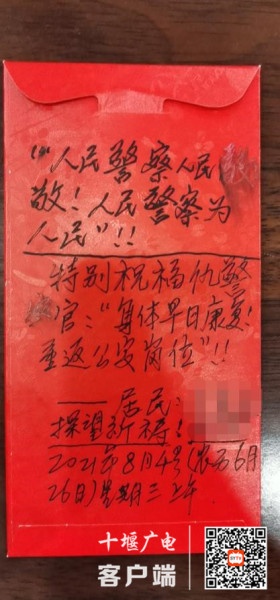 “人民警察人民
敬！人民警察为
人民”！！
特别祝福仇警
官：“身体早日康复！
重返公安岗位”！！
——居民：
探望所得！
2021年8月4号(农历6月
26日)星期三上午
十堰广电
客户端